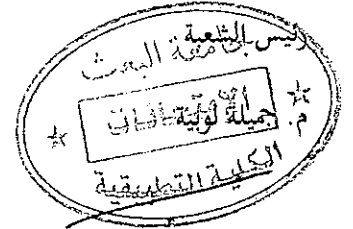 رئيس الشعبة
جامعة البعث
م. جميلة لوبية
الكلية التطبيقية